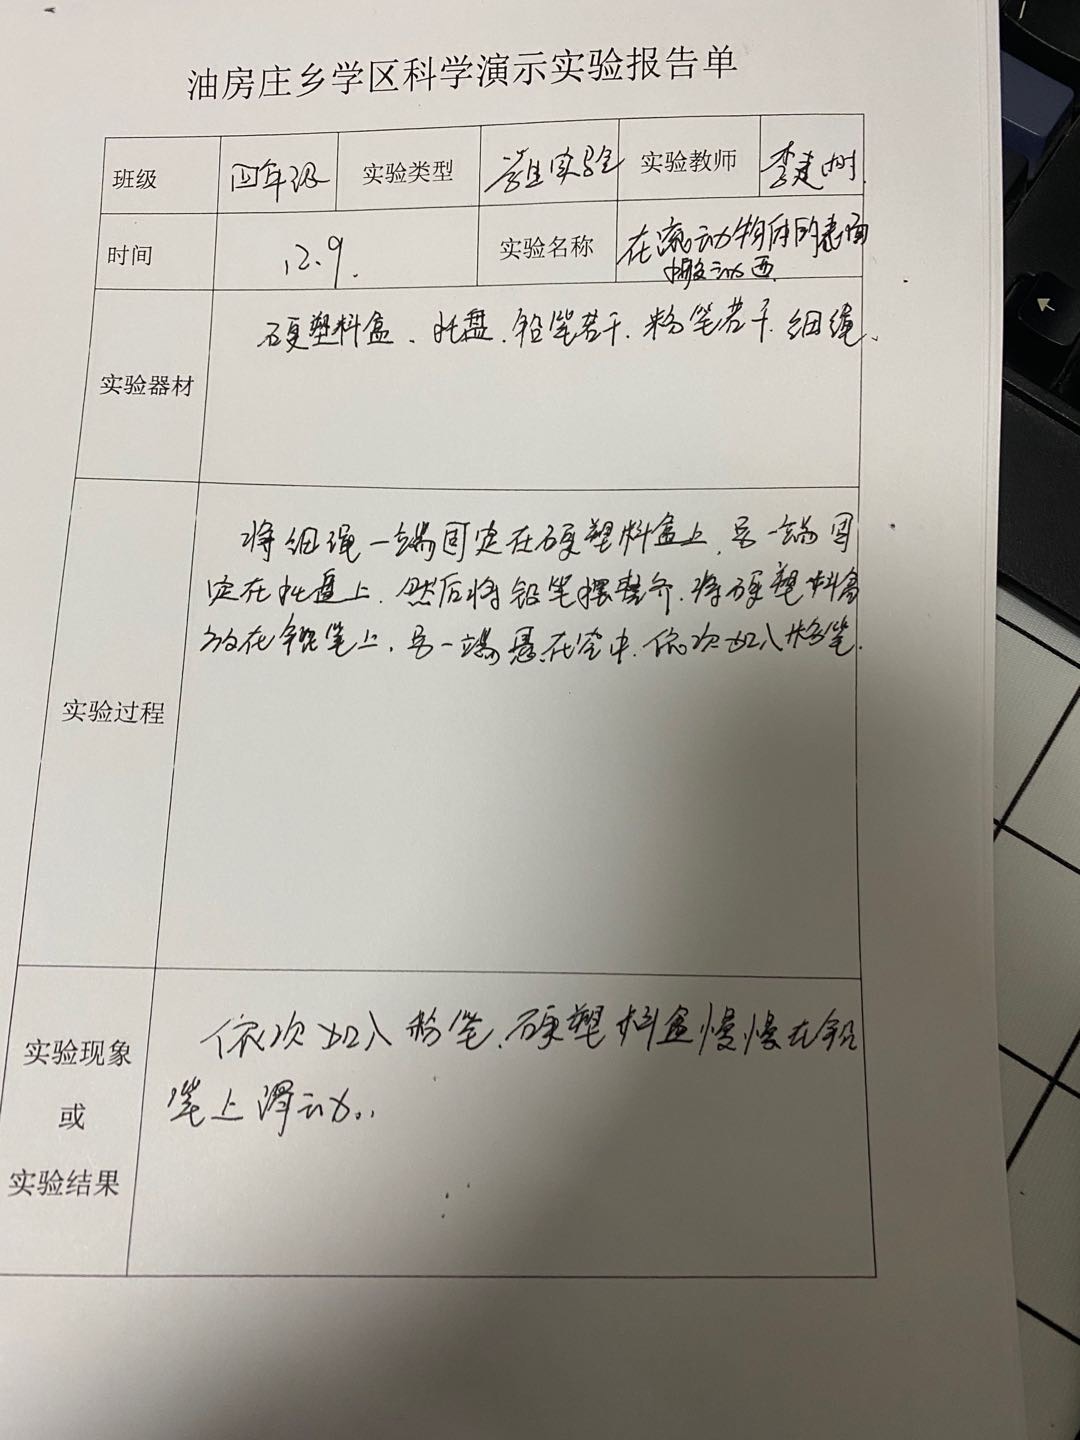 油房庄乡学区科学演示实验报告单
班级 四年级 实验类型 学生实验 实验教师 李建树
时间 12.9. 实验名称 在滚动物体的表面
搬动西
实验器材 硬塑料盒、托盘、铅笔若干、粉笔若干、细绳、
将细绳一端固定在硬塑料盒上,另一端固
定在托盘上,然后将铅笔摆整齐,将硬塑料盒
放在铅笔上,另一端悬在空中,依次加入粉笔.
实验过程
依次加入粉笔,硬塑料盒慢慢在铅
笔上滑动..
实验现象
或
实验结果